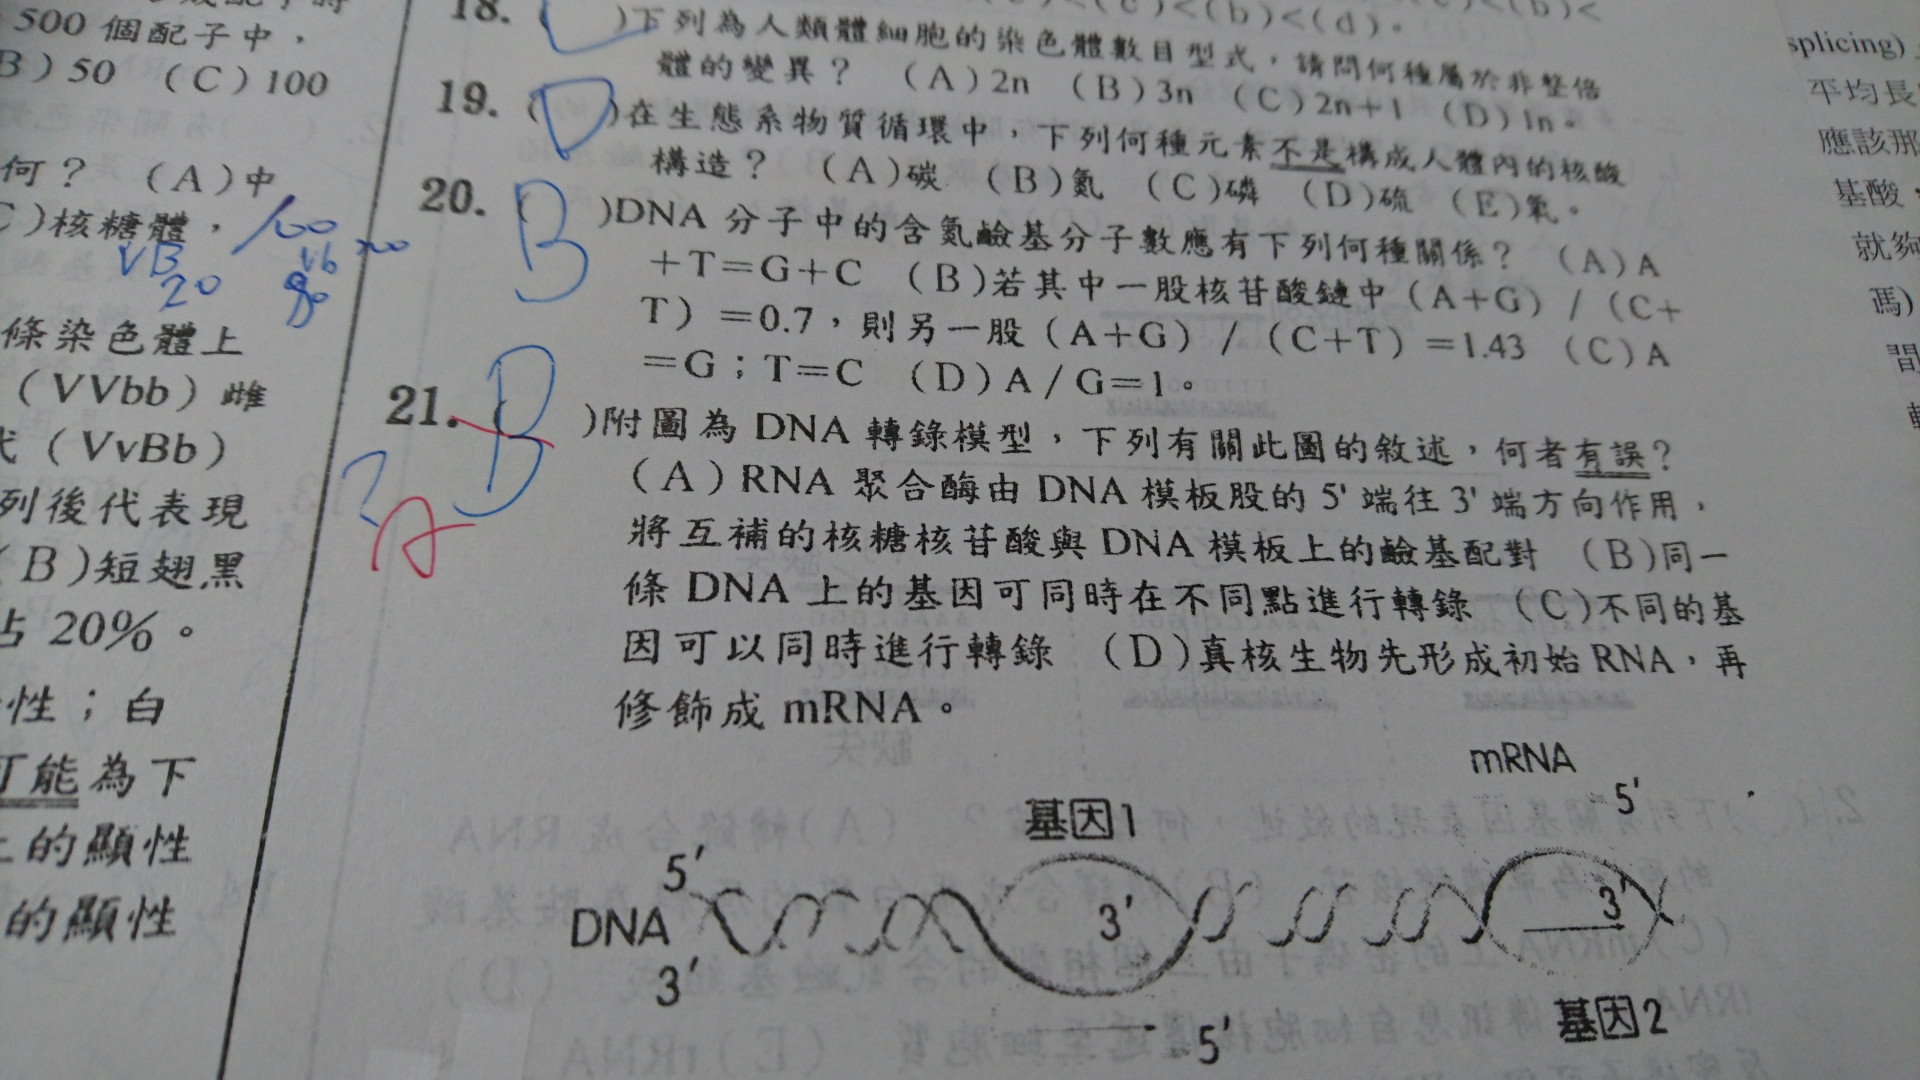 500個配子中，
B)50 (C)100
何？ (A)中
C)核糖體，
VB
20
100
Vb
80
20
條染色體上
(VVbb)雌
代(VvBb)
列後代表現
(B)短翅黑
占20%。
性；白
可能為下
上的顯性
的顯性
18. ( )下列為人類體細胞的染色體數目型式，請問何種屬於非整倍
體的變異？ (A)2n (B)3n (C)2n+1 (D)1n。
19. (D)在生態系物質循環中，下列何種元素不是構成人體內的核酸
構造？ (A)碳 (B)氮 (C)磷 (D)硫 (E)氧。
20. (B)DNA分子中的含氮鹼基分子數應有下列何種關係？ (A)A
+T=G+C (B)若其中一股核苷酸鏈中(A+G)/(C+
T)=0.7，則另一股(A+G)/(C+T)=1.43 (C)A
=G；T=C (D)A/G=1。
21. (B)附圖為DNA轉錄模型，下列有關此圖的敘述，何者有誤？
? A
(A)RNA聚合酶由DNA模板股的5'端往3'端方向作用，
將互補的核糖核苷酸與DNA模板上的鹼基配對 (B)同一
條DNA上的基因可同時在不同點進行轉錄 (C)不同的基
因可以同時進行轉錄 (D)真核生物先形成初始RNA，再
修飾成mRNA。
mRNA
5'
基因1
5'
DNA
3'
3'
3'
基因2
5'
splicing)
平均長
應該那
基酸
就夠
碼)
間